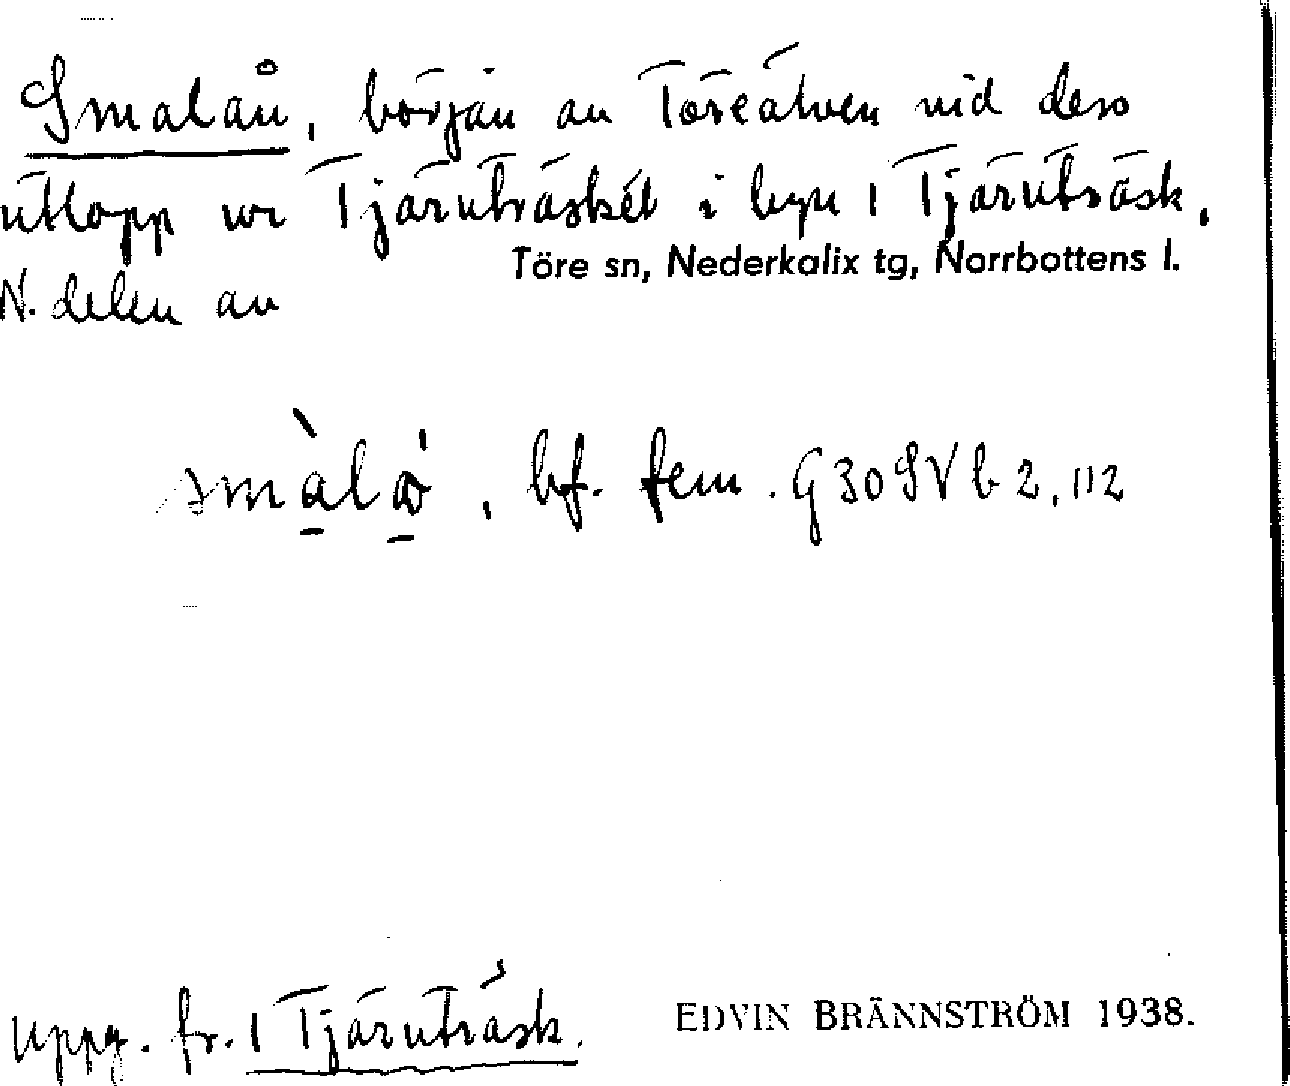 Smalån, början av Töreälven vid dess
utlopp ur Tjärnträsket i byn 1 Tjärnträsk,
Töre sn, Nederkalix tg, Norrbottens l.
N. delen av
smàlå̀, bf. fem. G 30 SVb 2, 112
Uppg. fr. 1 Tjärnträsk.
EDVIN BRÄNNSTRÖM 1938.